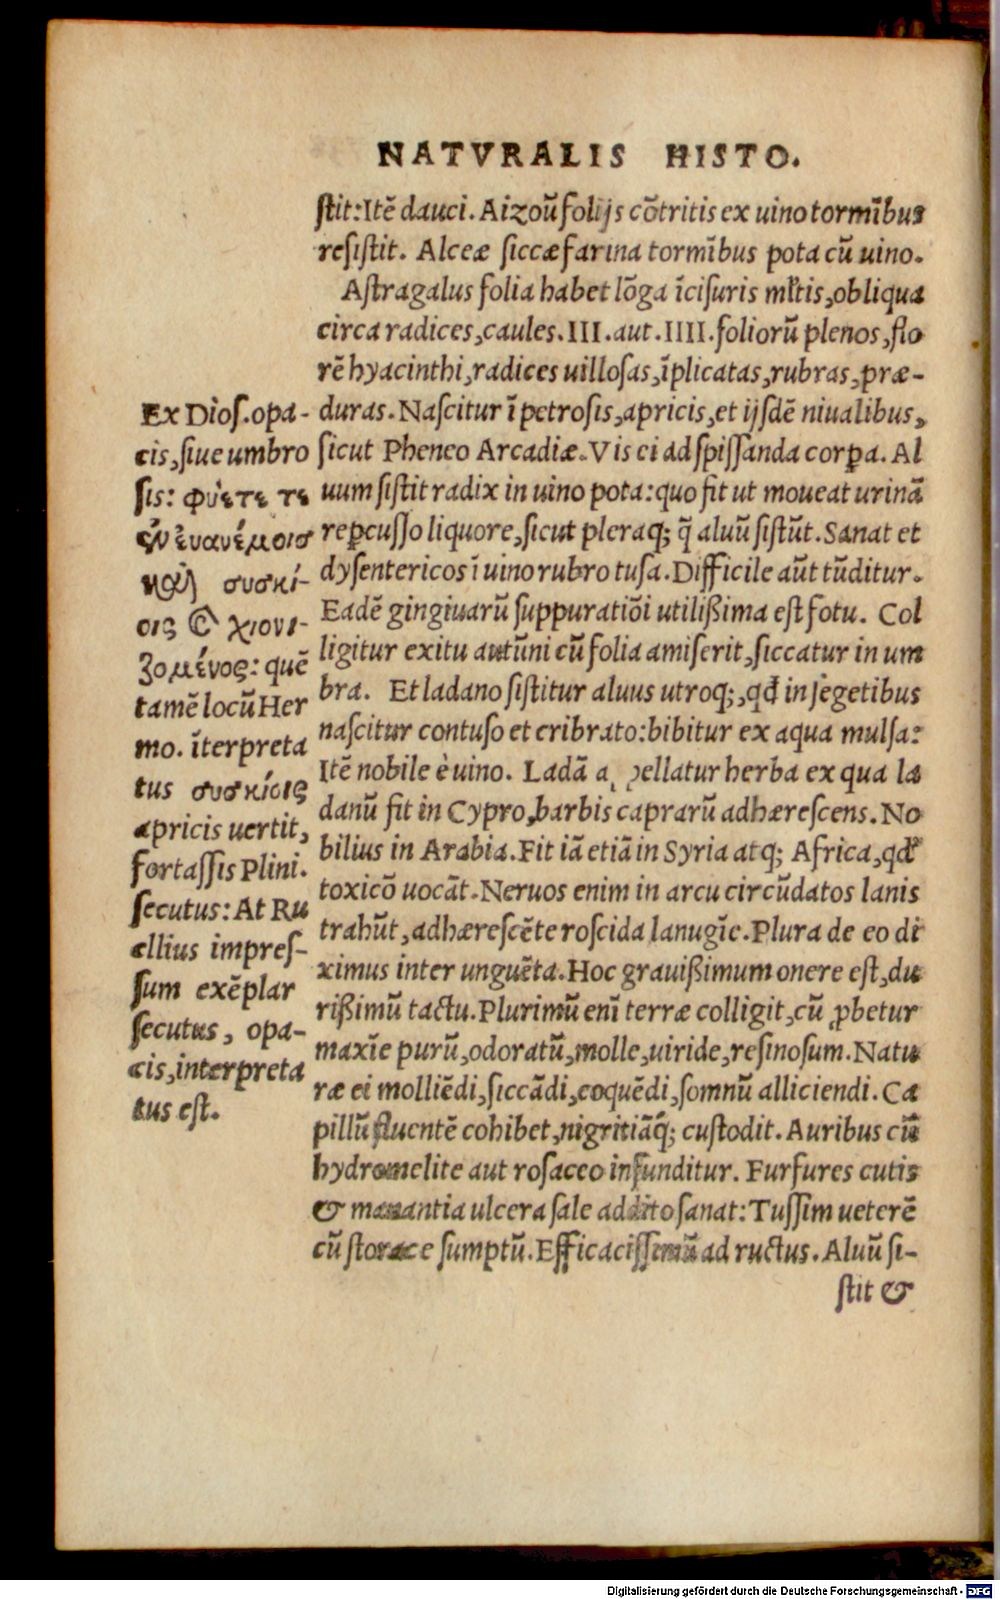 NATVRALIS HISTO.
ſtit: Itē dauci. Aizoū folijs cōtritis ex uino tormībus
reſiſtit. Alceæ ſiccæ farina tormībus pota cū uino.
Aſtragalus folia habet lōga īciſuris ml̄tis, obliqua
circa radices, caules. III. aut. IIII. foliorū plenos, flo
rē hyacinthi, radices uilloſas, īplicatas, rubras, præ-
duras. Naſcitur ī petroſis, apricis, et ijſdē niualibus,
ſicut Pheneo Arcadiæ. Vis ei ad ſpiſſanda corꝑa. Al
uum ſiſtit radix in uino pota: quo fit ut moueat urinā
reꝑcuſſo liquore, ſicut pleraq; q̄ aluū ſiſtūt. Sanat et
dyſentericos ī uino rubro tuſa. Difficile aūt tūditur.
Eadē gingiuarū ſuppuratiōi utilißima eſt fotu. Col
ligitur exitu autūni cū folia amiſerit, ſiccatur in um
bra. Et ladano ſiſtitur aluus utroq;, qđ in ſegetibus
naſcitur contuſo et cribrato: bibitur ex aqua mulſa:
Itē nobile è uino. Ladā herba ex qua la
danū fit in Cypro, barbis caprarū adhæreſcens. No
bilius in Arabia. Fit iā etiā in Syria atq; Africa, qđ
toxicō uocāt. Neruos enim in arcu circūdatos lanis
trahūt, adhæreſcēte roſcida lanugīe. Plura de eo di
ximus inter unguēta. Hoc grauißimum onere eſt, du
rißimū tactu. Plurimū enī terræ colligit, cū ꝓbetur
maxīe purū, odoratū, molle, uiride, reſinoſum. Natu
ræ ei molliēdi, ſiccādi, coquēdi, ſomnū alliciendi. Ca
pillū fluentē cohibet, nigritiāq́; cuſtodit. Auribus cū
hydromelite aut roſaceo infunditur. Furfures cutis
& manantia ulcera ſale addito ſanat: Tuſſim ueterē
cū ſtorace ſumptū. Efficaciſſimū ad ructus. Aluū ſi-
ſtit &
Ex Dioſ. opa-
cis, ſiue umbro
ſis: φύεται τε
ἐν εὐανέμοισ
καὶ συσκί-
οις ϗ̀ χιονι-
ζομένοις: quē
tamē locū Her
mo. īterpreta
tus συσκίοις
apricis uertit,
fortaſſis Plini.
ſecutus: At Ru
ellius impreſ-
ſum exēplar
ſecutus, opa-
cis, interpreta
tus eſt.
Digitalisierung gefördert durch die Deutsche Forschungsgemeinschaft - DFG